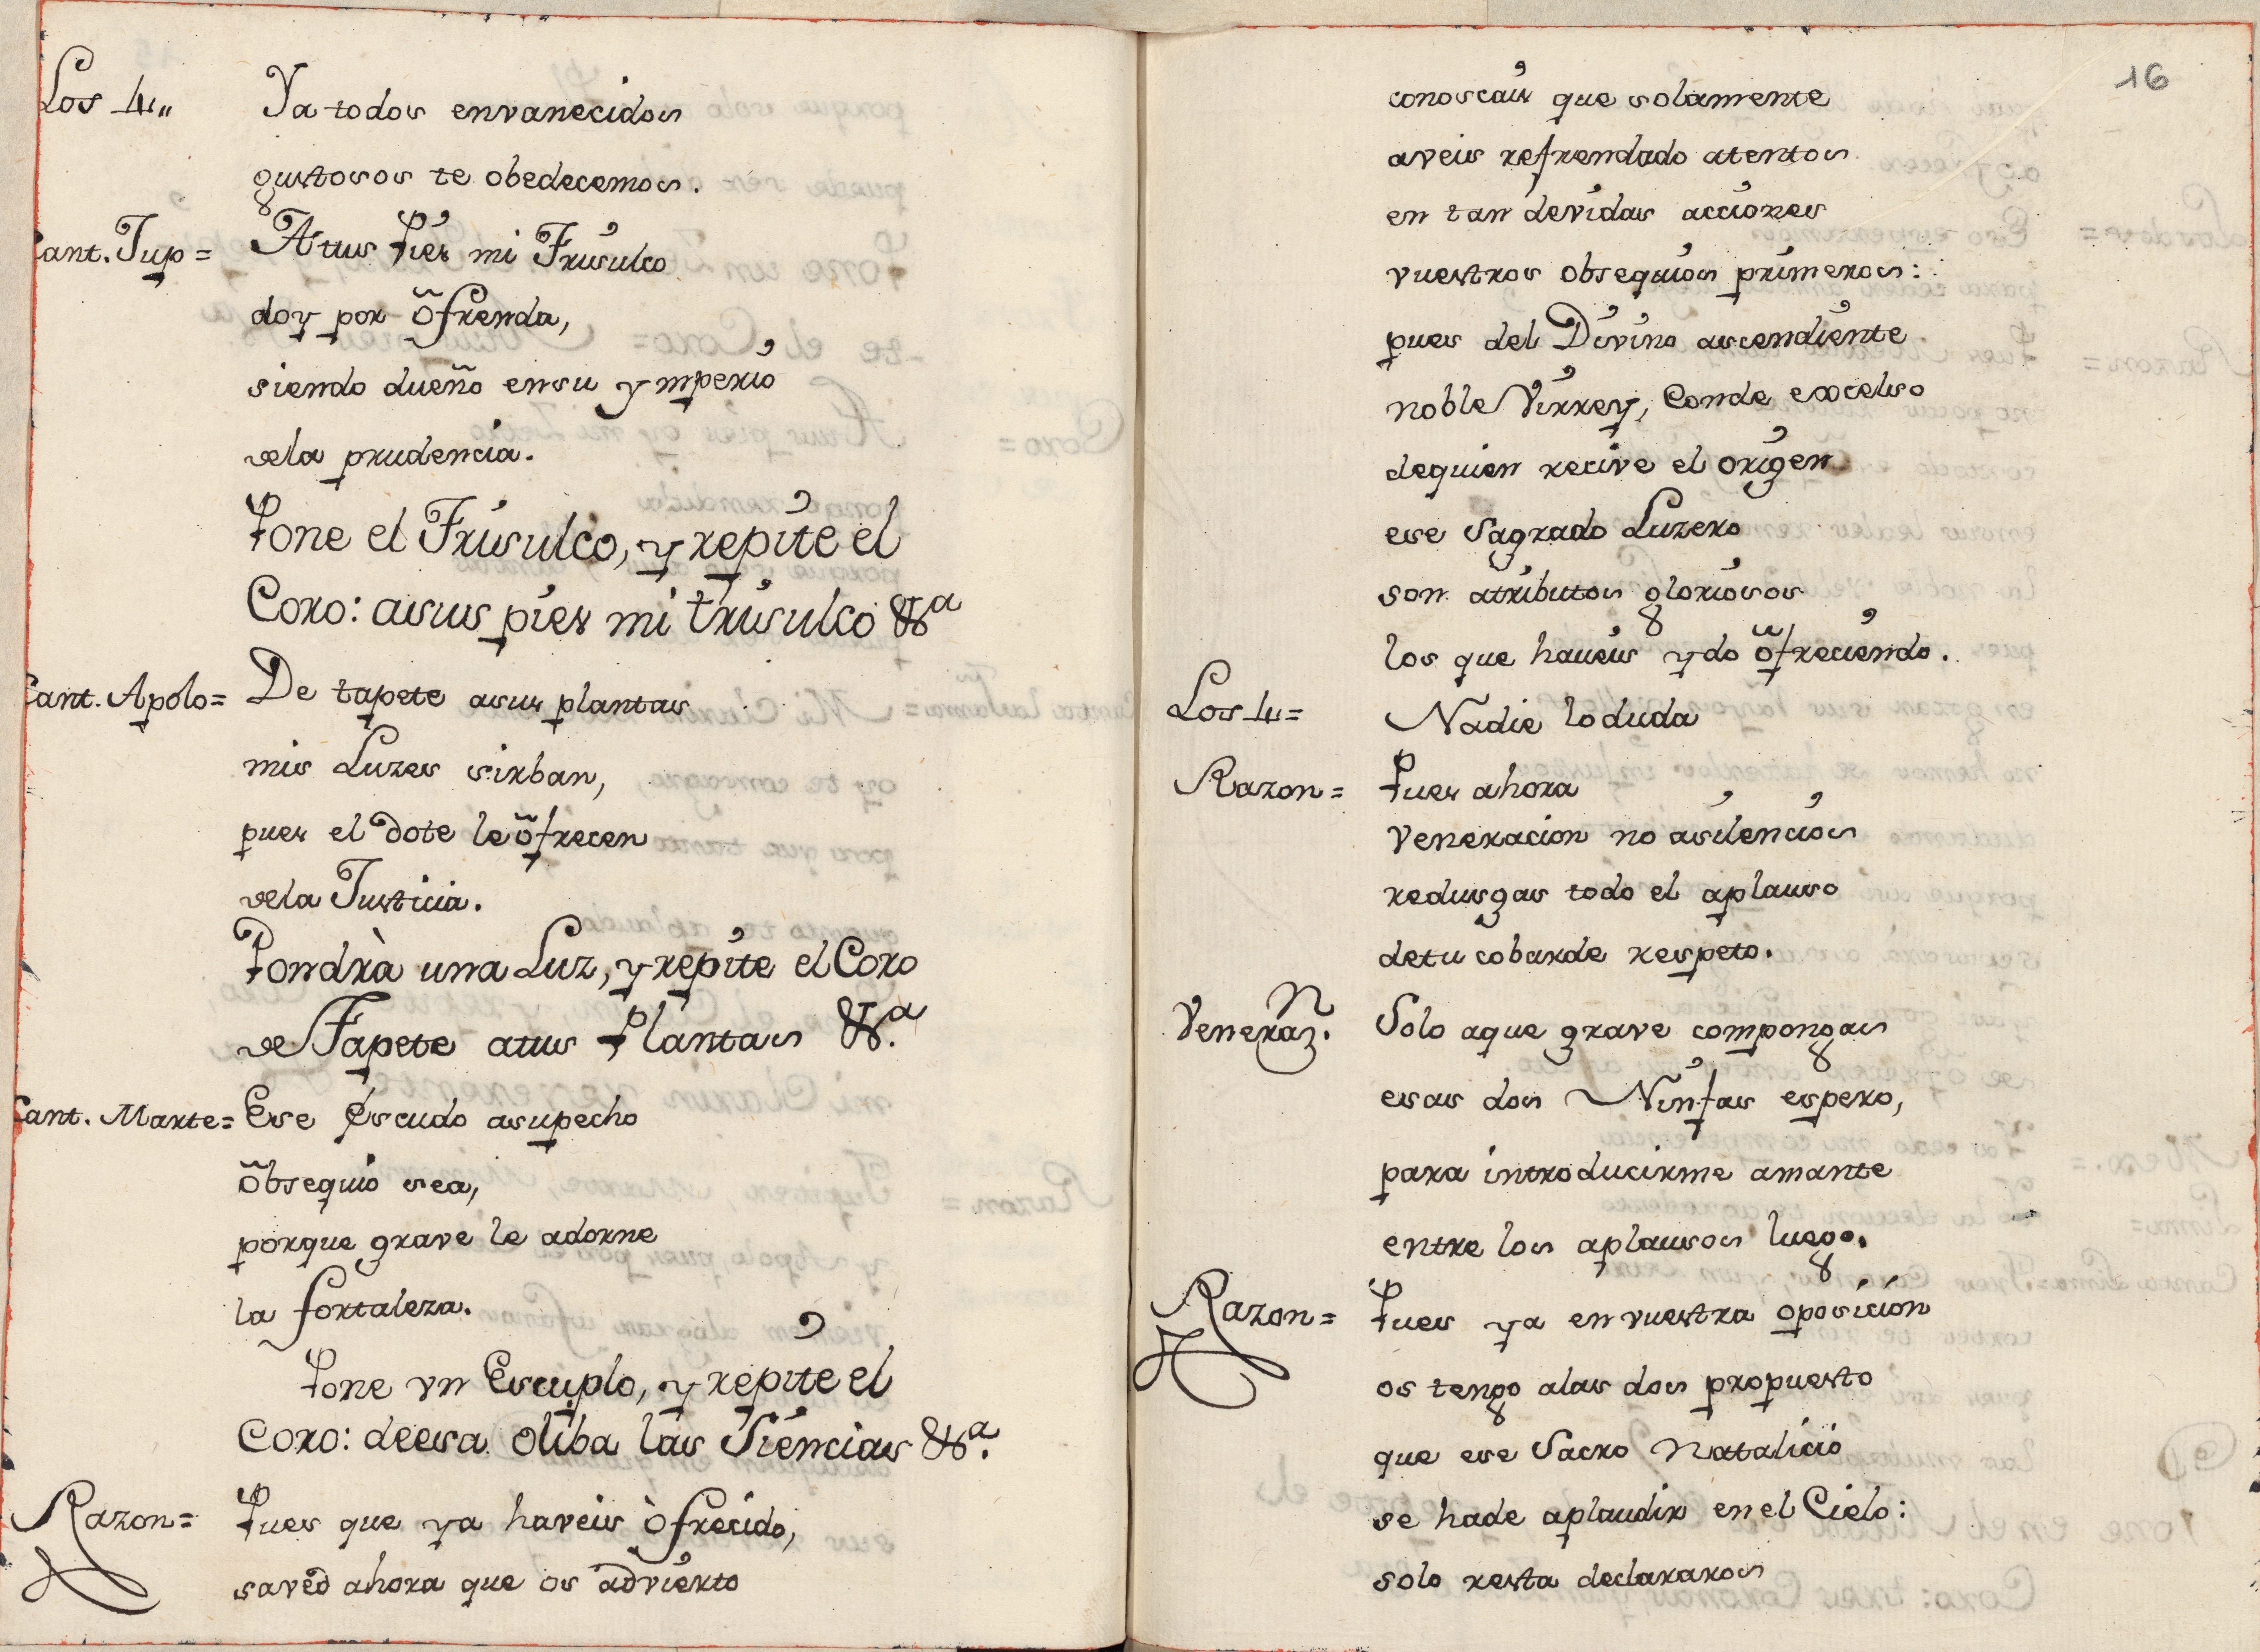 Los 4,, Ya todos envanecidos
gustosos te obedecemos.
Cant. Jup = A tus Pies mi Frisulco
doy por õfrenda,
siendo dueño ensu ymperio
dela prudencia.
Pone el Frisulco, y repite el
Coro: asus pies mi trisulco &ª
Cant. Apolo = De tapete asus plantas
mis Luzes sirban,
pues el dote le õfrecen
dela Justicia.
Pondrà una Luz, y repite el Coro
de Tapete atus Plantas &.ª
Cant. Marte = Ese Escudo asupecho
õbsequio sea,
porque grave le adorne
la fortaleza.
Pone vn Escuplo, y repite el
Coro: deesa oliba las Siencias &ª.
Razon = Pues que ya haveis òfrecido,
saved ahora que os advierto
16
conoscais que solamente
aveis refrendado atentos
en tan devidas acciones
vuestros obsequios primeros:
pues del Divino ascendiente
noble Virrey, Conde excelso
dequien recive el origen
ese Sagrado Luzero
son atributos gloriosos
los que haueis ydo õfreciendo.
Los 4 = Nadie loduda
Razon = Pues ahora
Veneracion no asilencios
redusgas todo el aplauso
detu cobarde respeto.
Veneraz.n Solo aque grave compongais
esas dos Ninfas espero,
para introducirme amante
entre los aplausos luego.
Razon = Pues ya en vuestra oposicion
os tengo alas dos propuesto
que ese Sacro Natalicio
se hade aplaudir en el Cielo:
solo resta declararos